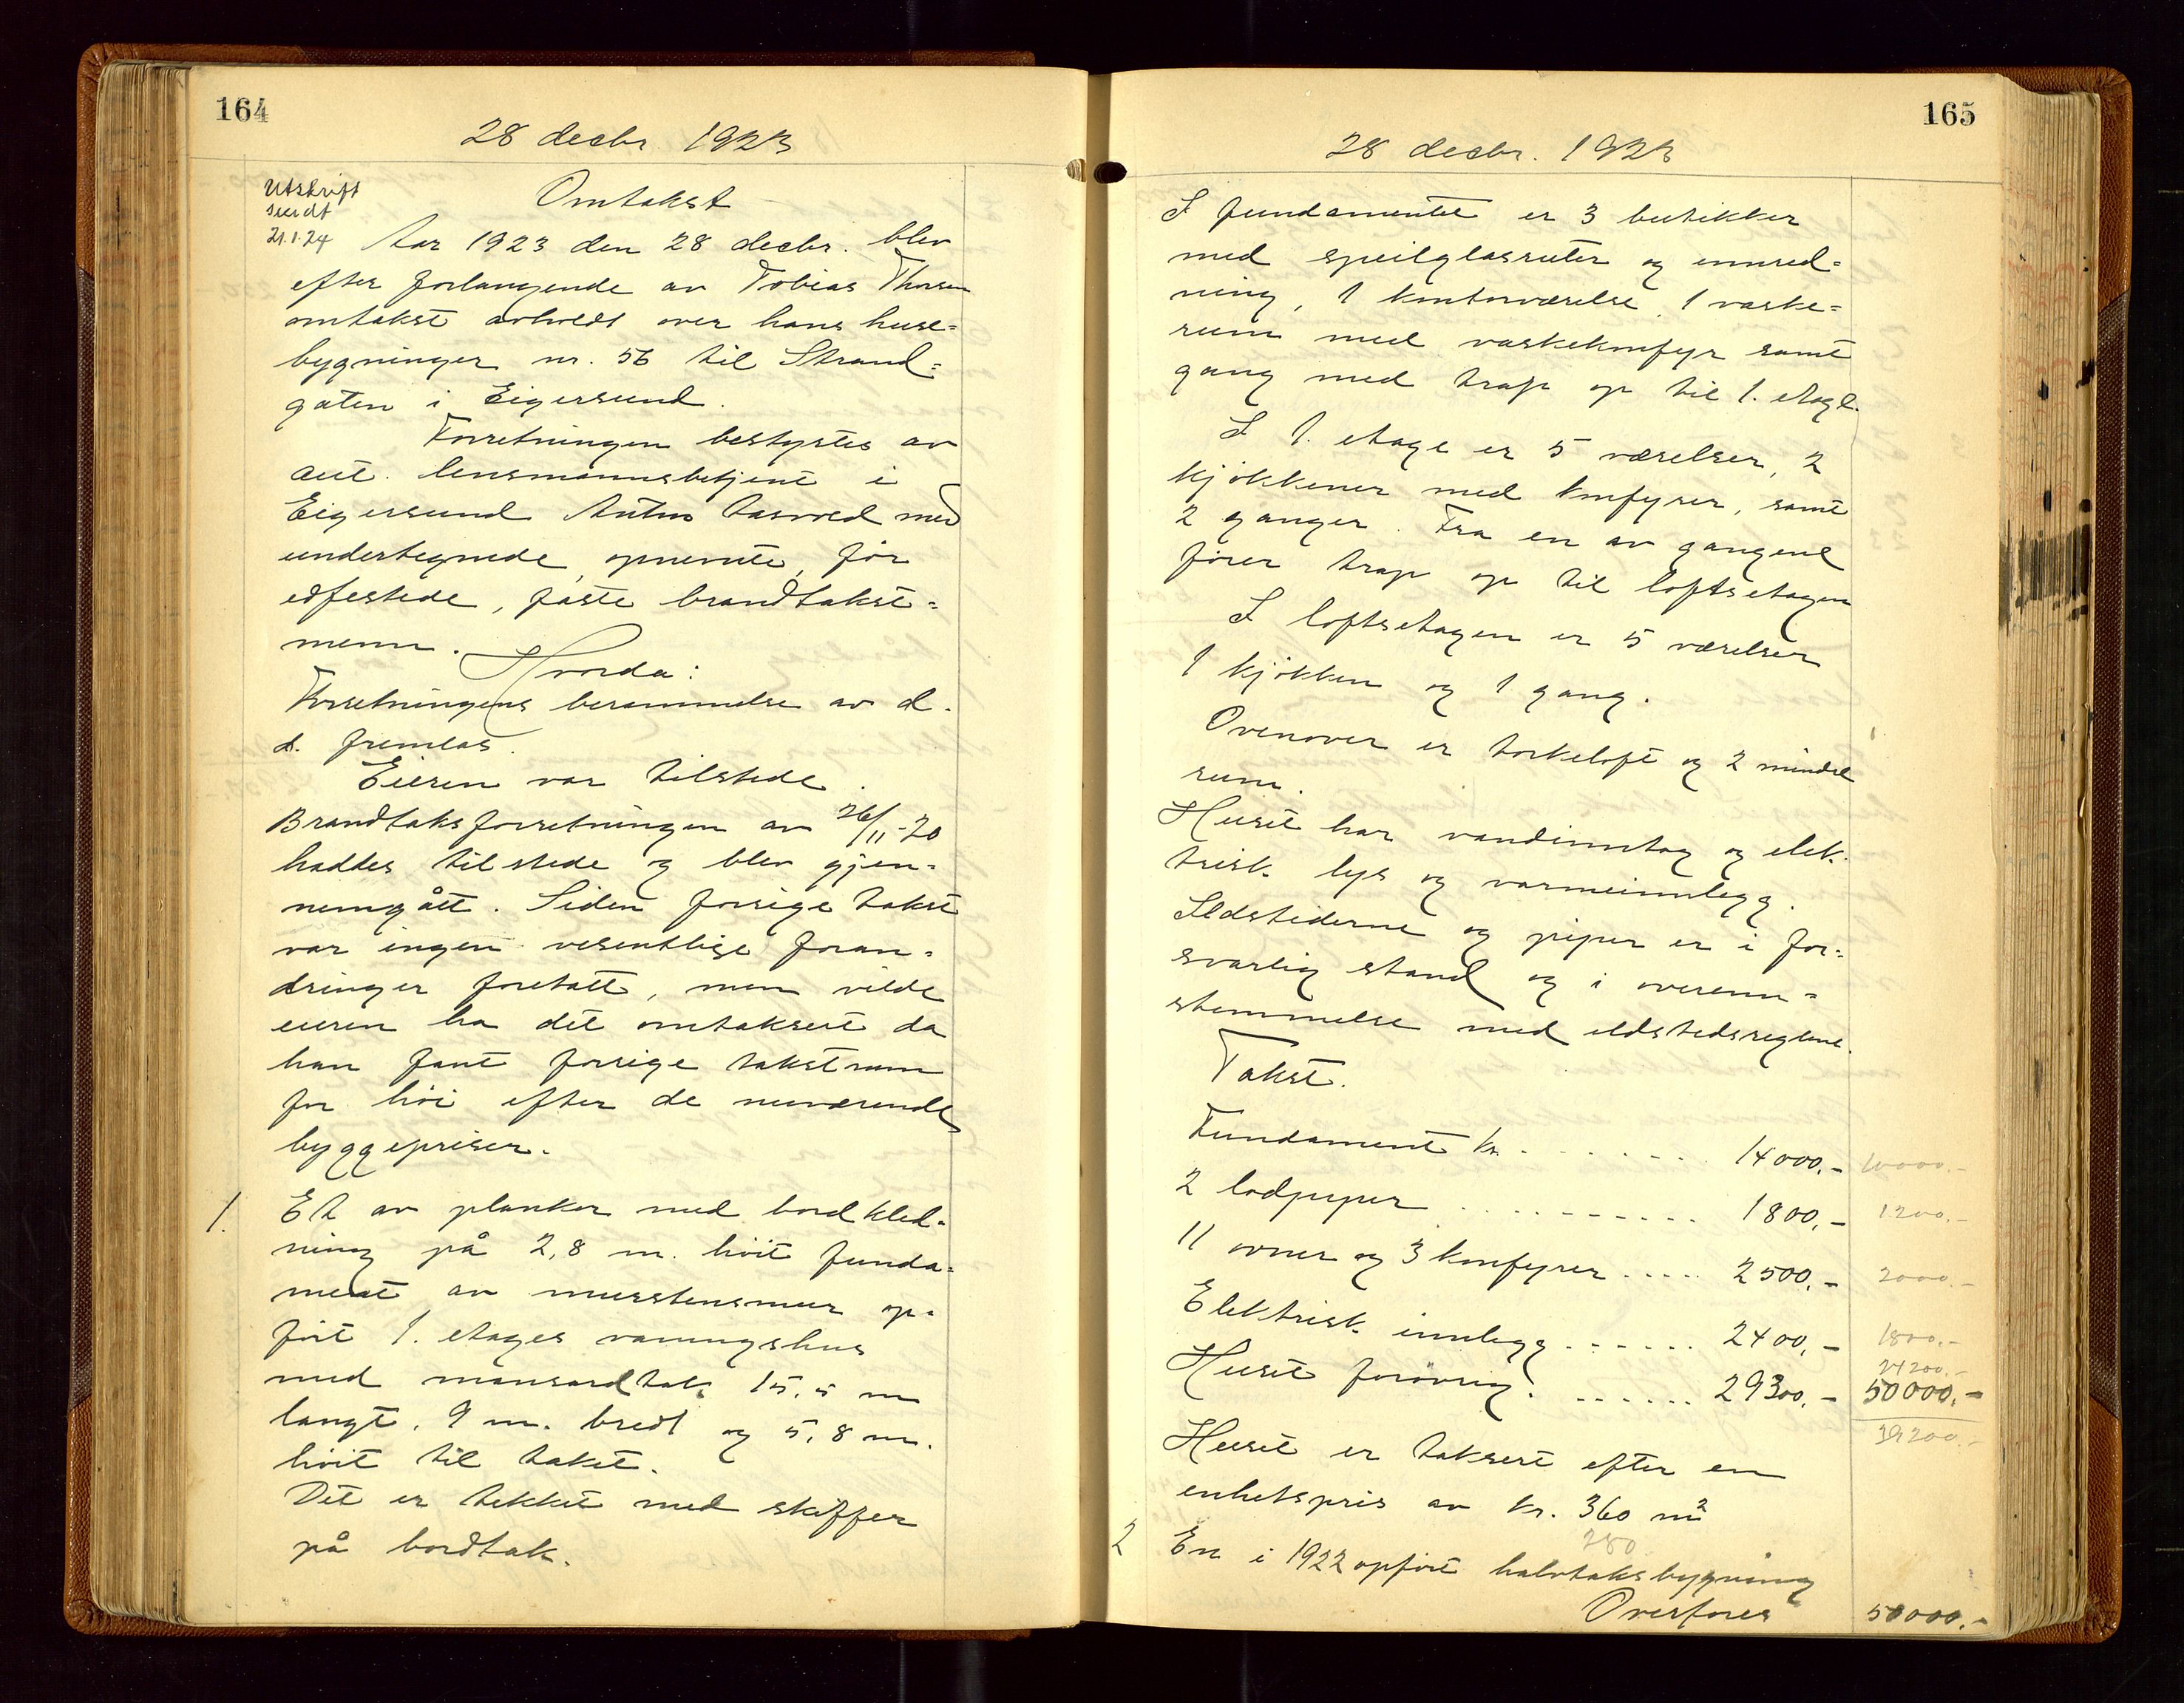 164
28 decbr. 1923
Utskrift
sendt
21.1.24
Omtakst
Aar 1923 den 28 decbr. blev
efter forlangende av Tobias Thorsen
omtakst avholdt over hans huse=
bygninger nr. 56 til Strand=
gaten i Eigersund.
Forretningen bestyrtes av
aut. lensmannsbetjent i
Eigersund Anton med
undertegnede opnevnte, før
edfestede, faste brandtakst=
menn.
Hvorda:
Forretningens berammelse av d.
d. fremlas.
Eieren var tilstede.
Brandtaksforretningen av 26/11-20
haddes tilstede og blev gjen=
nemgått. Siden forrige takst
var ingen vesentlige foran=
dringer foretatt, men vilde
eieren ha det omtaksert da
han fant forrige takstsum
for høi efter de nuværende
byggepriser.
1. Et av planker med bordkled=
ning på 2,8 m. høit funda=
ment av murstensmur op=
ført 1. etages vaningshus
med mansardtak 15,5 m
langt, 9 m. bredt og 5,8 m.
høit til taket.
Det er tekket med skiffer
på bordtak.
165
28 decbr. 1923
I fundamentet er 3 butikker
med speilglasruter og innred=
ning, 1 kontorværelse, 1 vaske=
rum med vaskekomfyr samt
gang med trap op til 1. etage.
I 1. etage er 5 værelser, 2
kjøkkener med komfyrer, samt
2 ganger. Fra en av gangene
fører trap op til loftsetagen
I loftsetagen er 5 værelser
1 kjøkken og 1 gang.
Ovenover er torkeloft og 2 mindre
rum.
Huset har vandinntag og elek.
trisk lys og varmeinnlegg.
Ildstederne og piper er i for=
svarlig stand og i overenn=
stemmelse med ildstedsreglene.
Takst.
Fundament kr. . . . . . . . 14000.- 10000.-
2 lodpiper . . . . . . . . . . 1800.- 1200.-
11 ovner og 3 komfyrer . . . . . 2500.- 2000.-
Elektrisk innlegg . . . . . . 2400.- 1800.-
24200.-
Huset forøvrig. . . . . . . 29300.- 50000.-
39200.-
Huset er taksert efter en
enhetspris av kr. 360 m²
280
2 En i 1922 opført halvtaksbygning
Overføres 50000.-